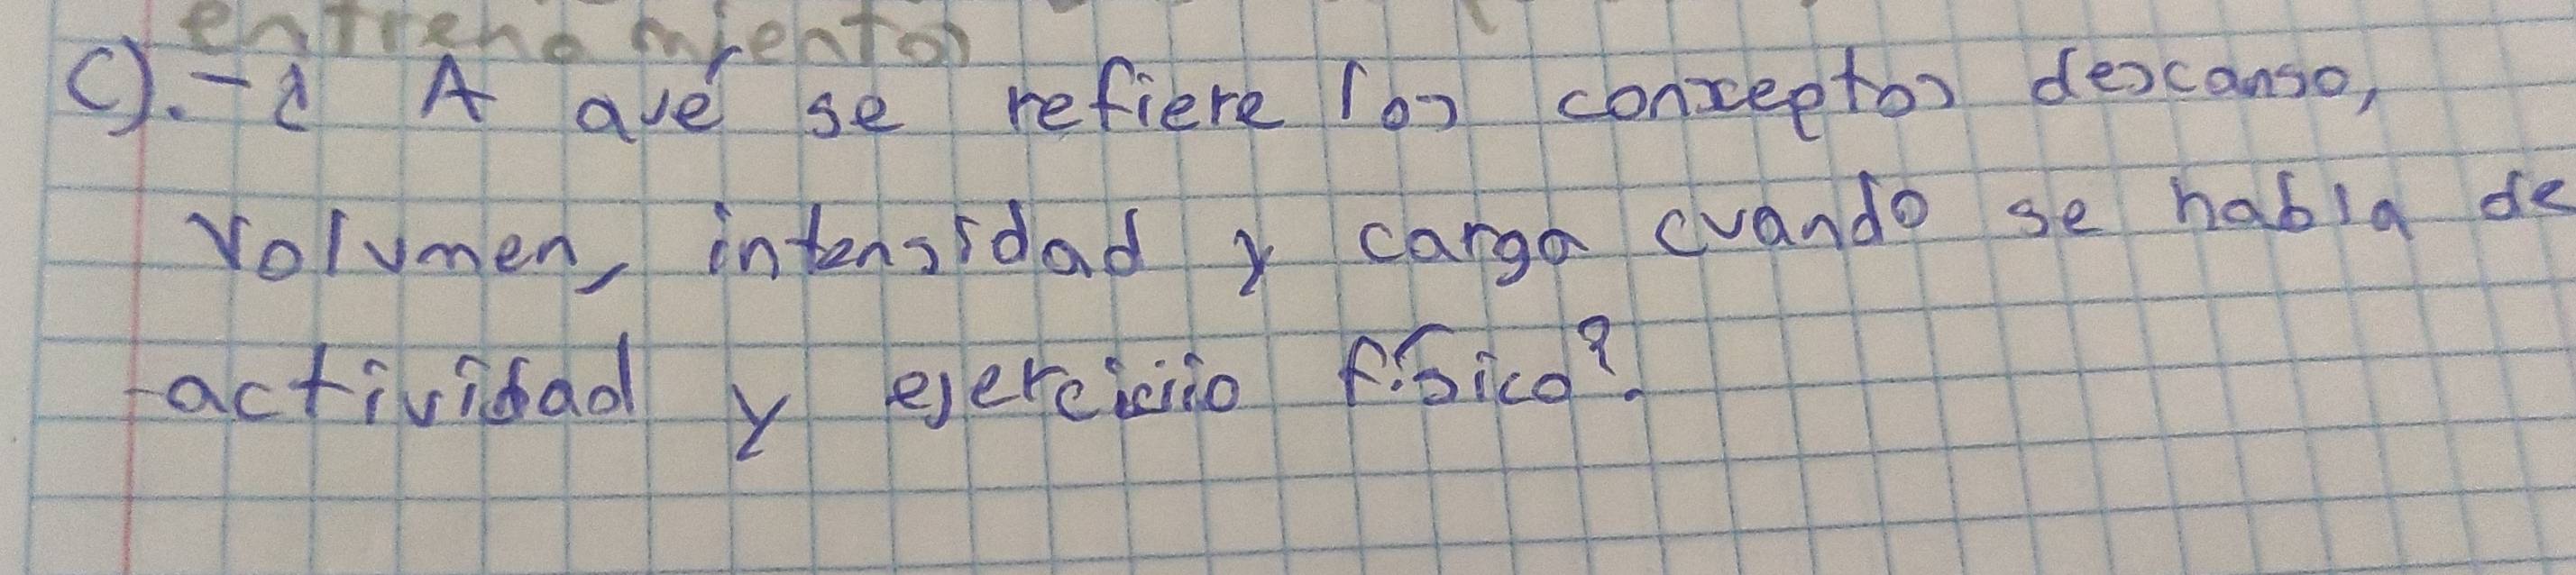 entrenamientos
C).- ¿ A qué se refiere los conxeptos descanso,
Volumen, intensidad y carga cuando se habla de
actividad y ejercicio físico?